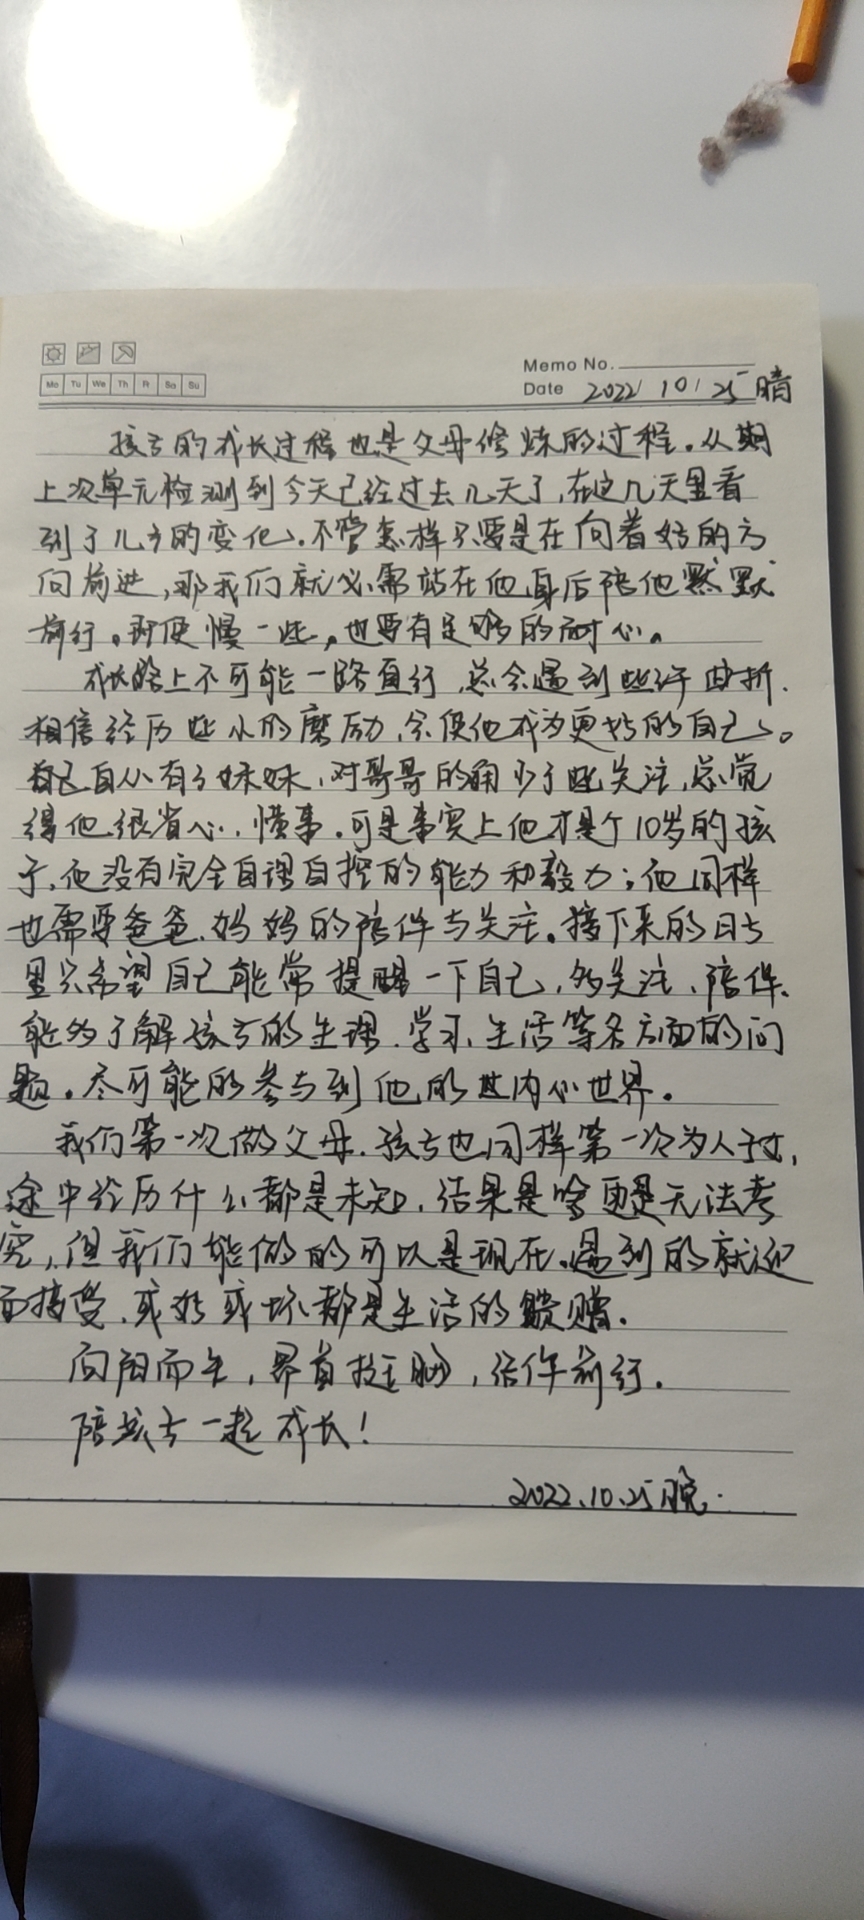 Memo No.
Mo Tu We Th Fr Sa Su
Date 2022/10/25 晴
孩子的成长过程也是父母修炼的过程。从期
上次单元检测到今天已经过去几天了,在这几天里看
到了儿子的变化。不管怎样只要是在向着好的方
向前进,那我们就必需站在他身后陪他默默
前行。即使慢一些,也要有足够的耐心。
成长路上不可能一路直行,总会遇到些许曲折.
相信经历些小的磨励,会使他成为更好的自己。
自己自从有了妹妹,对哥哥的确少了些关注,总觉
得他很省心,懂事。可是事实上他才是个10岁的孩
子,他没有完全自理自控的能力和毅力;他同样
也需要爸爸、妈妈的陪伴与关注。接下来的日子
里只希望自己能常提醒一下自己,多关注、陪伴、
能多了解孩子的生理、学习、生活等各方面的问
题。尽可能的参与到他的内心世界。
我们第一次做父母,孩子也同样第一次为人子女,
途中经历什么都是未知,结果是啥更是无法考
究,但我们能做的可以是现在。遇到的就迎
面接受,或好或坏都是生活的馈赠。
向阳而生,昂首挺胸,结伴前行。
陪孩子一起成长!
2022.10.25晚.